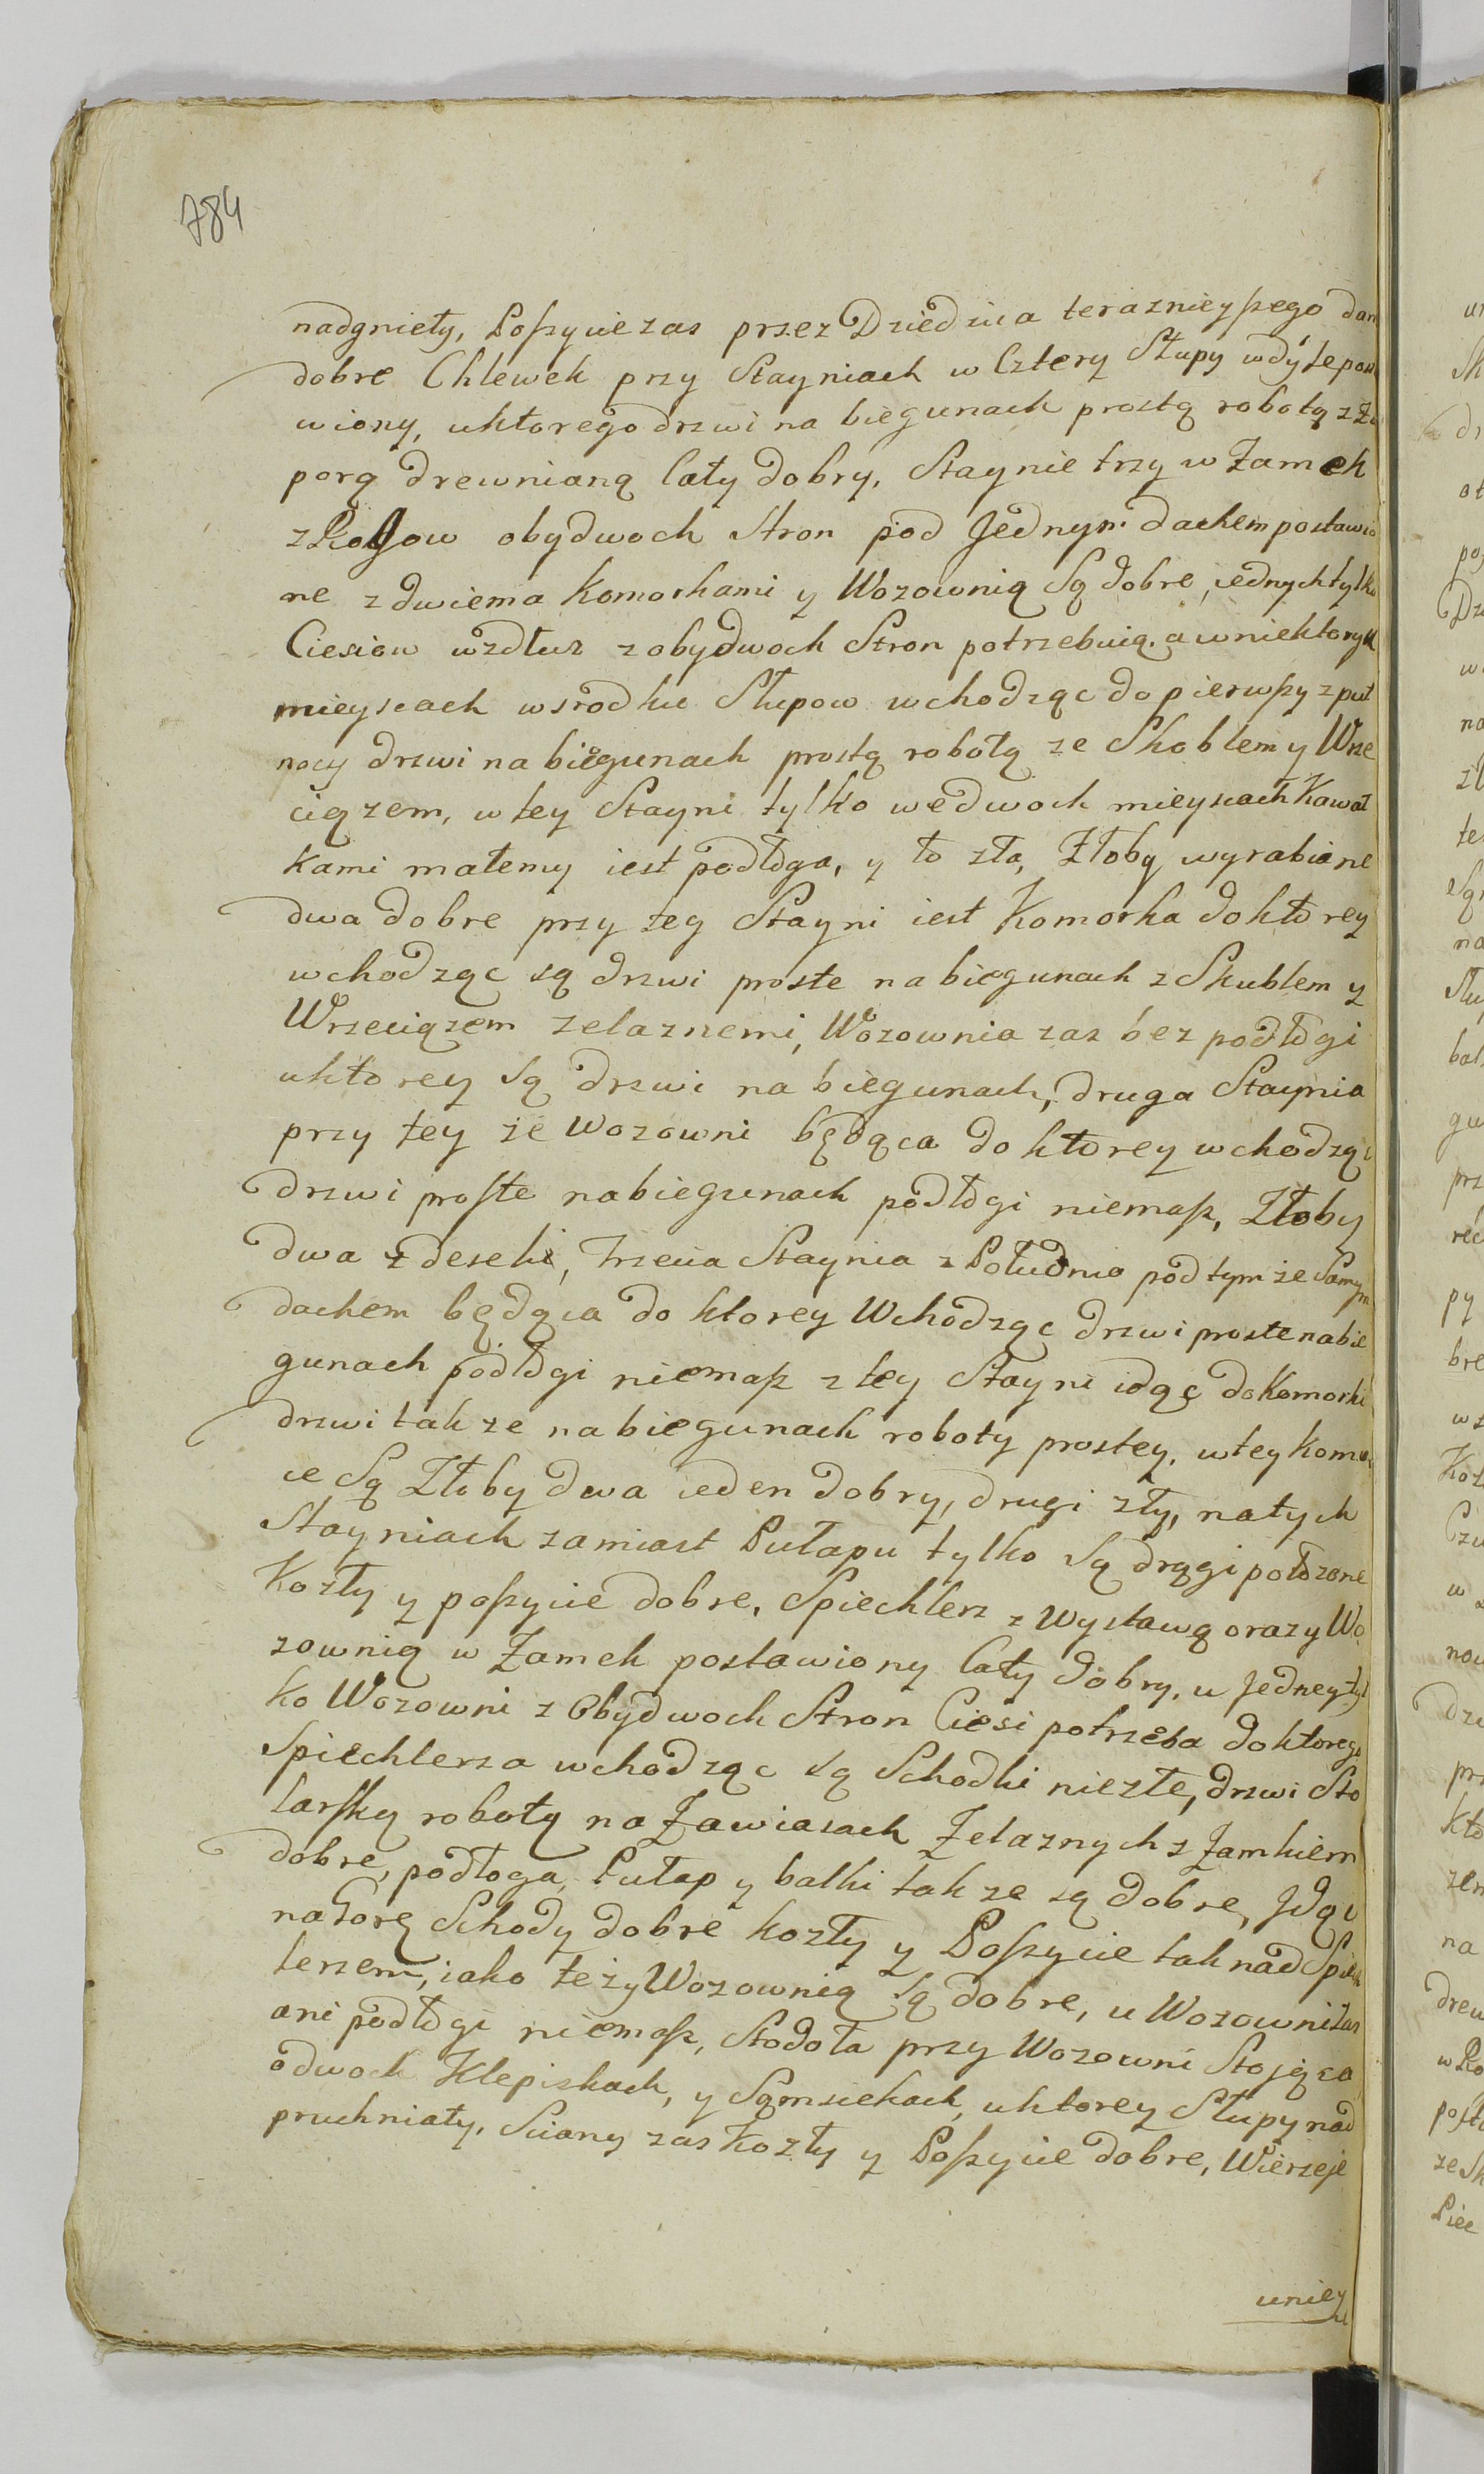 784
nadgnieły, Poszycie zas przez Dziedzica teraznieyszego dan
dobre Chlewek przy Stayniach w Cztery Słupy wdyle posta
wiony, uktorego drzwi na biegunach prostą robotą z Za
porą drewnianą Cały dobry, Staynie trzy w Zamek
z Rogow obydwoch Stron pod Jednym dachem postawio
ne z dwiema Komorkami y Wozownią Są dobre, iednych tylko
Ciesiow wzdłuz z obydwoch Stron potrzebuią. a w niektorych
mieyscach wsrodku Słupow wchodząc do pierwszy z puł
nocy drzwi na biegunach prostą robotą ze Skoblem y Wrze
ciązem, w tey Stayni tylko wedwoch mieyscach Kawał
kami małemy iest podłoga, y to zła, Złoby wyrabiane
dwa dobre przy tey Stayni iest Komorka doktorey
wchodząc są drzwi proste na biegunach z Skublem y
Wrzeciązem zelaznemi, Wozownia zas bez podłogi
uktorey Są drzwi na biegunach, druga Staynia
przy tey ze Wozowni będąca do ktorey wchodząc
drzwi proste nabiegunach podłogi niemasz, Złoby
dwa z deseki, Trzecia Staynia z Południa pod tym ze Samym
dachem będąca do ktorey Wchodząc drzwi proste nabie
gunach podłogi niemasz z tey Stayni idąc do Komorki
drzwi tak ze na biegunach roboty prostey, w tey komor
ce Są Złoby dwa ieden dobry, drugi zły, natych
Stayniach zamiast Pułapu tylko Są drągi położone
Kozły y poszycie dobre, Spiechlerz z Wystawą oraz y Wo
zownią w Zamek postawiony Cały dobry, u Jedney tyl
ko Wozowni z Obydwoch Stron Ciesi potrzeba doktorego
Spiechlerza wchodząc są Schodki niezłe, drzwi Sto
larską robotą na Zawiasach Zelaznych z Zamkiem
dobre, podłoga, Pułap y balki tak ze są dobre, Jdąc
na Gorę Schody dobre kozły y Poszycie tak nad Spiech
lerzem, iako też y Wozownią Są dobre, u Wozowni zas
ani podłogi niemasz, Stodoła przy Wozowni Stojąca
o dwoch Klepiskach, y Sąmsiekach, uktorey Słupy nad
pruchniały, Sciany zas Kozły y Poszycie dobre, Wierzeje
uniey